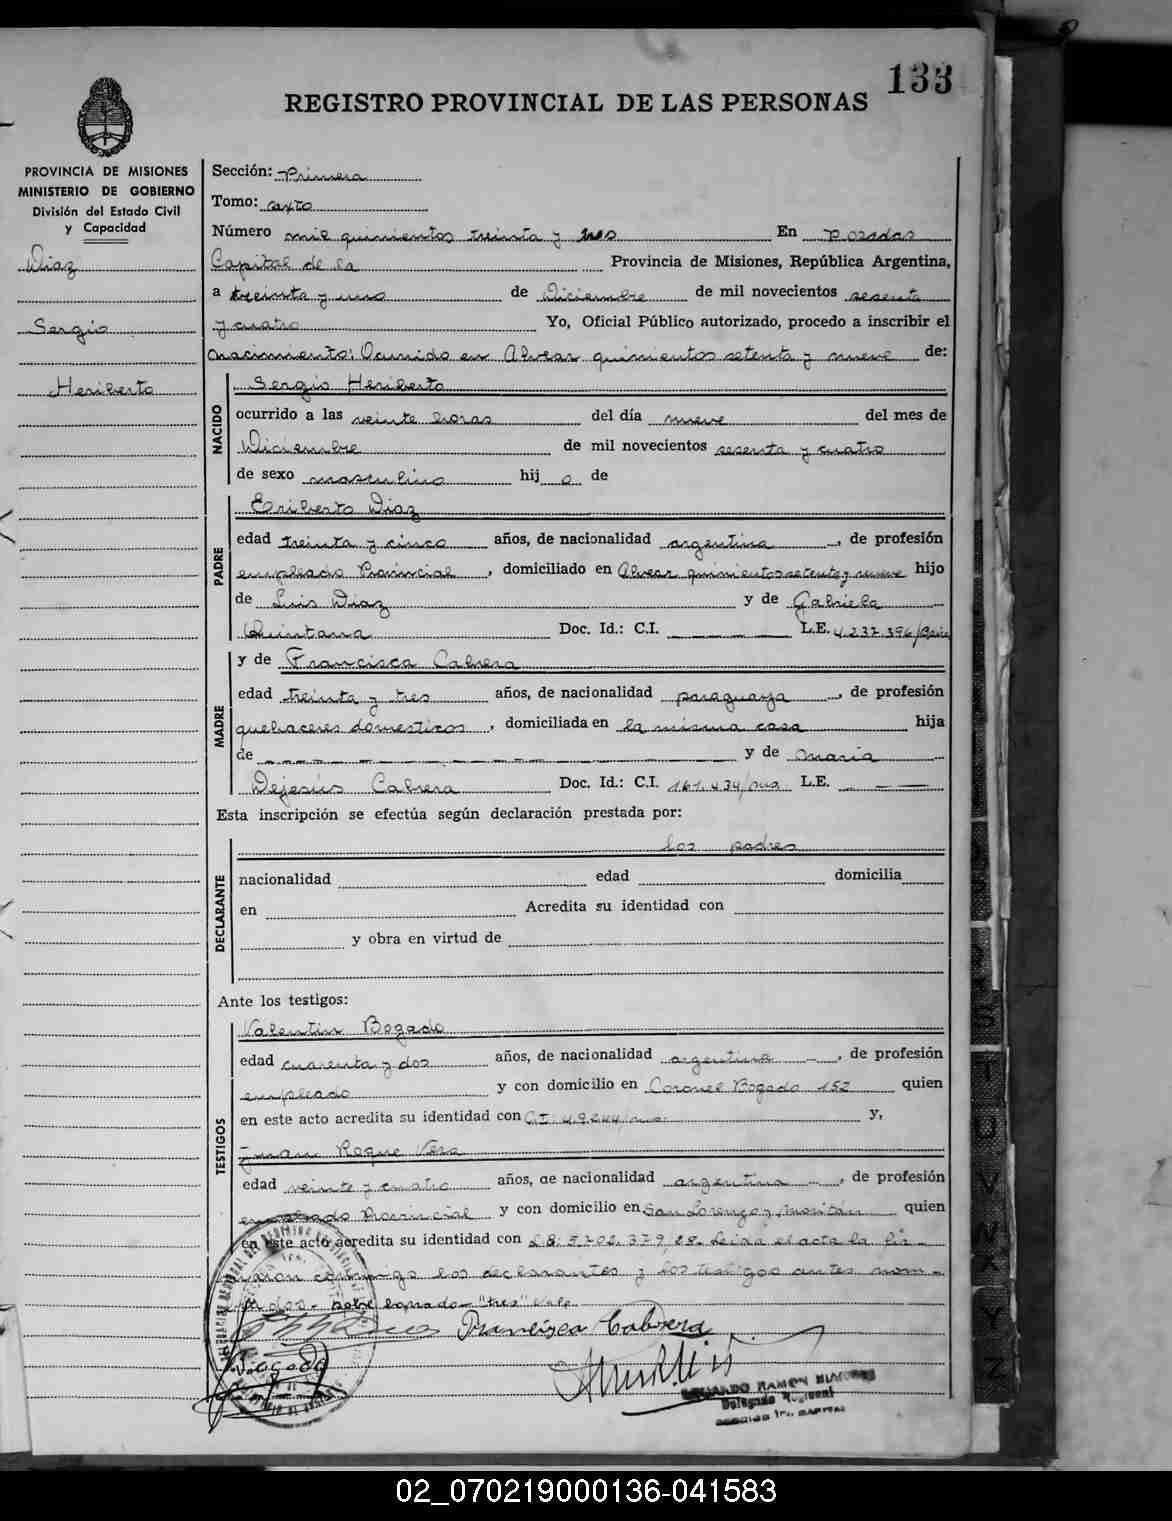 133
REGISTRO PROVINCIAL DE LAS PERSONAS
PROVINCIA DE MISIONES
MINISTERIO DE GOBIERNO
División del Estado Civil
y Capacidad
Diaz
Sergio
Heriberto
Sección: Primera
Tomo: sexto
Número mil quinientos treinta y tres En Posadas
Capital de la Provincia de Misiones, República Argentina,
a treinta y uno de Diciembre de mil novecientos sesenta
y cuatro Yo, Oficial Público autorizado, procedo a inscribir el
nacimiento: Ocurrido en Alvear quinientos setenta y nueve de:
NACIDO
Sergio Heriberto
ocurrido a las veinte horas del día nueve del mes de
Diciembre de mil novecientos sesenta y cuatro
de sexo masculino hijo de
PADRE
Eriberto Diaz
edad treinta y cinco años, de nacionalidad argentina, de profesión
empleado Provincial, domiciliado en Alvear quinientos setenta y nueve hijo
de Luis Diaz y de Gabriela
Quintana Doc. Id.: C.I. L.E. 4.237.396/
MADRE
y de Francisca Cabrera
edad treinta y tres años, de nacionalidad paraguaya, de profesión
quehaceres domesticos, domiciliada en la misma casa hija
de y de María
Dejesús Cabrera Doc. Id.: C.I. 161.434/ma L.E.
Esta inscripción se efectúa según declaración prestada por:
DECLARANTE
los padres
nacionalidad edad domicilia
en Acredita su identidad con
y obra en virtud de
Ante los testigos:
TESTIGOS
Valentin Bogado
edad cuarenta y dos años, de nacionalidad argentina, de profesión
empleado y con domicilio en Coronel Bogado 152 quien
en este acto acredita su identidad con C.I. 49.244/ma. y,
Juan Roque Vera
edad veinte y cuatro años, de nacionalidad argentina, de profesión
empleado Provincial y con domicilio en San Lorenzo y quien
en este acto acredita su identidad con 5.702.379/ Leida el acta la fir-
maron conmigo los declarantes y los testigos antes nom-
brados - sobre borrado - "tres" vale
Francisca Cabrera
Bogado
EDUARDO RAMON
Delegado Regional
SECCION 1ra. CAPITAL
02_070219000136-041583